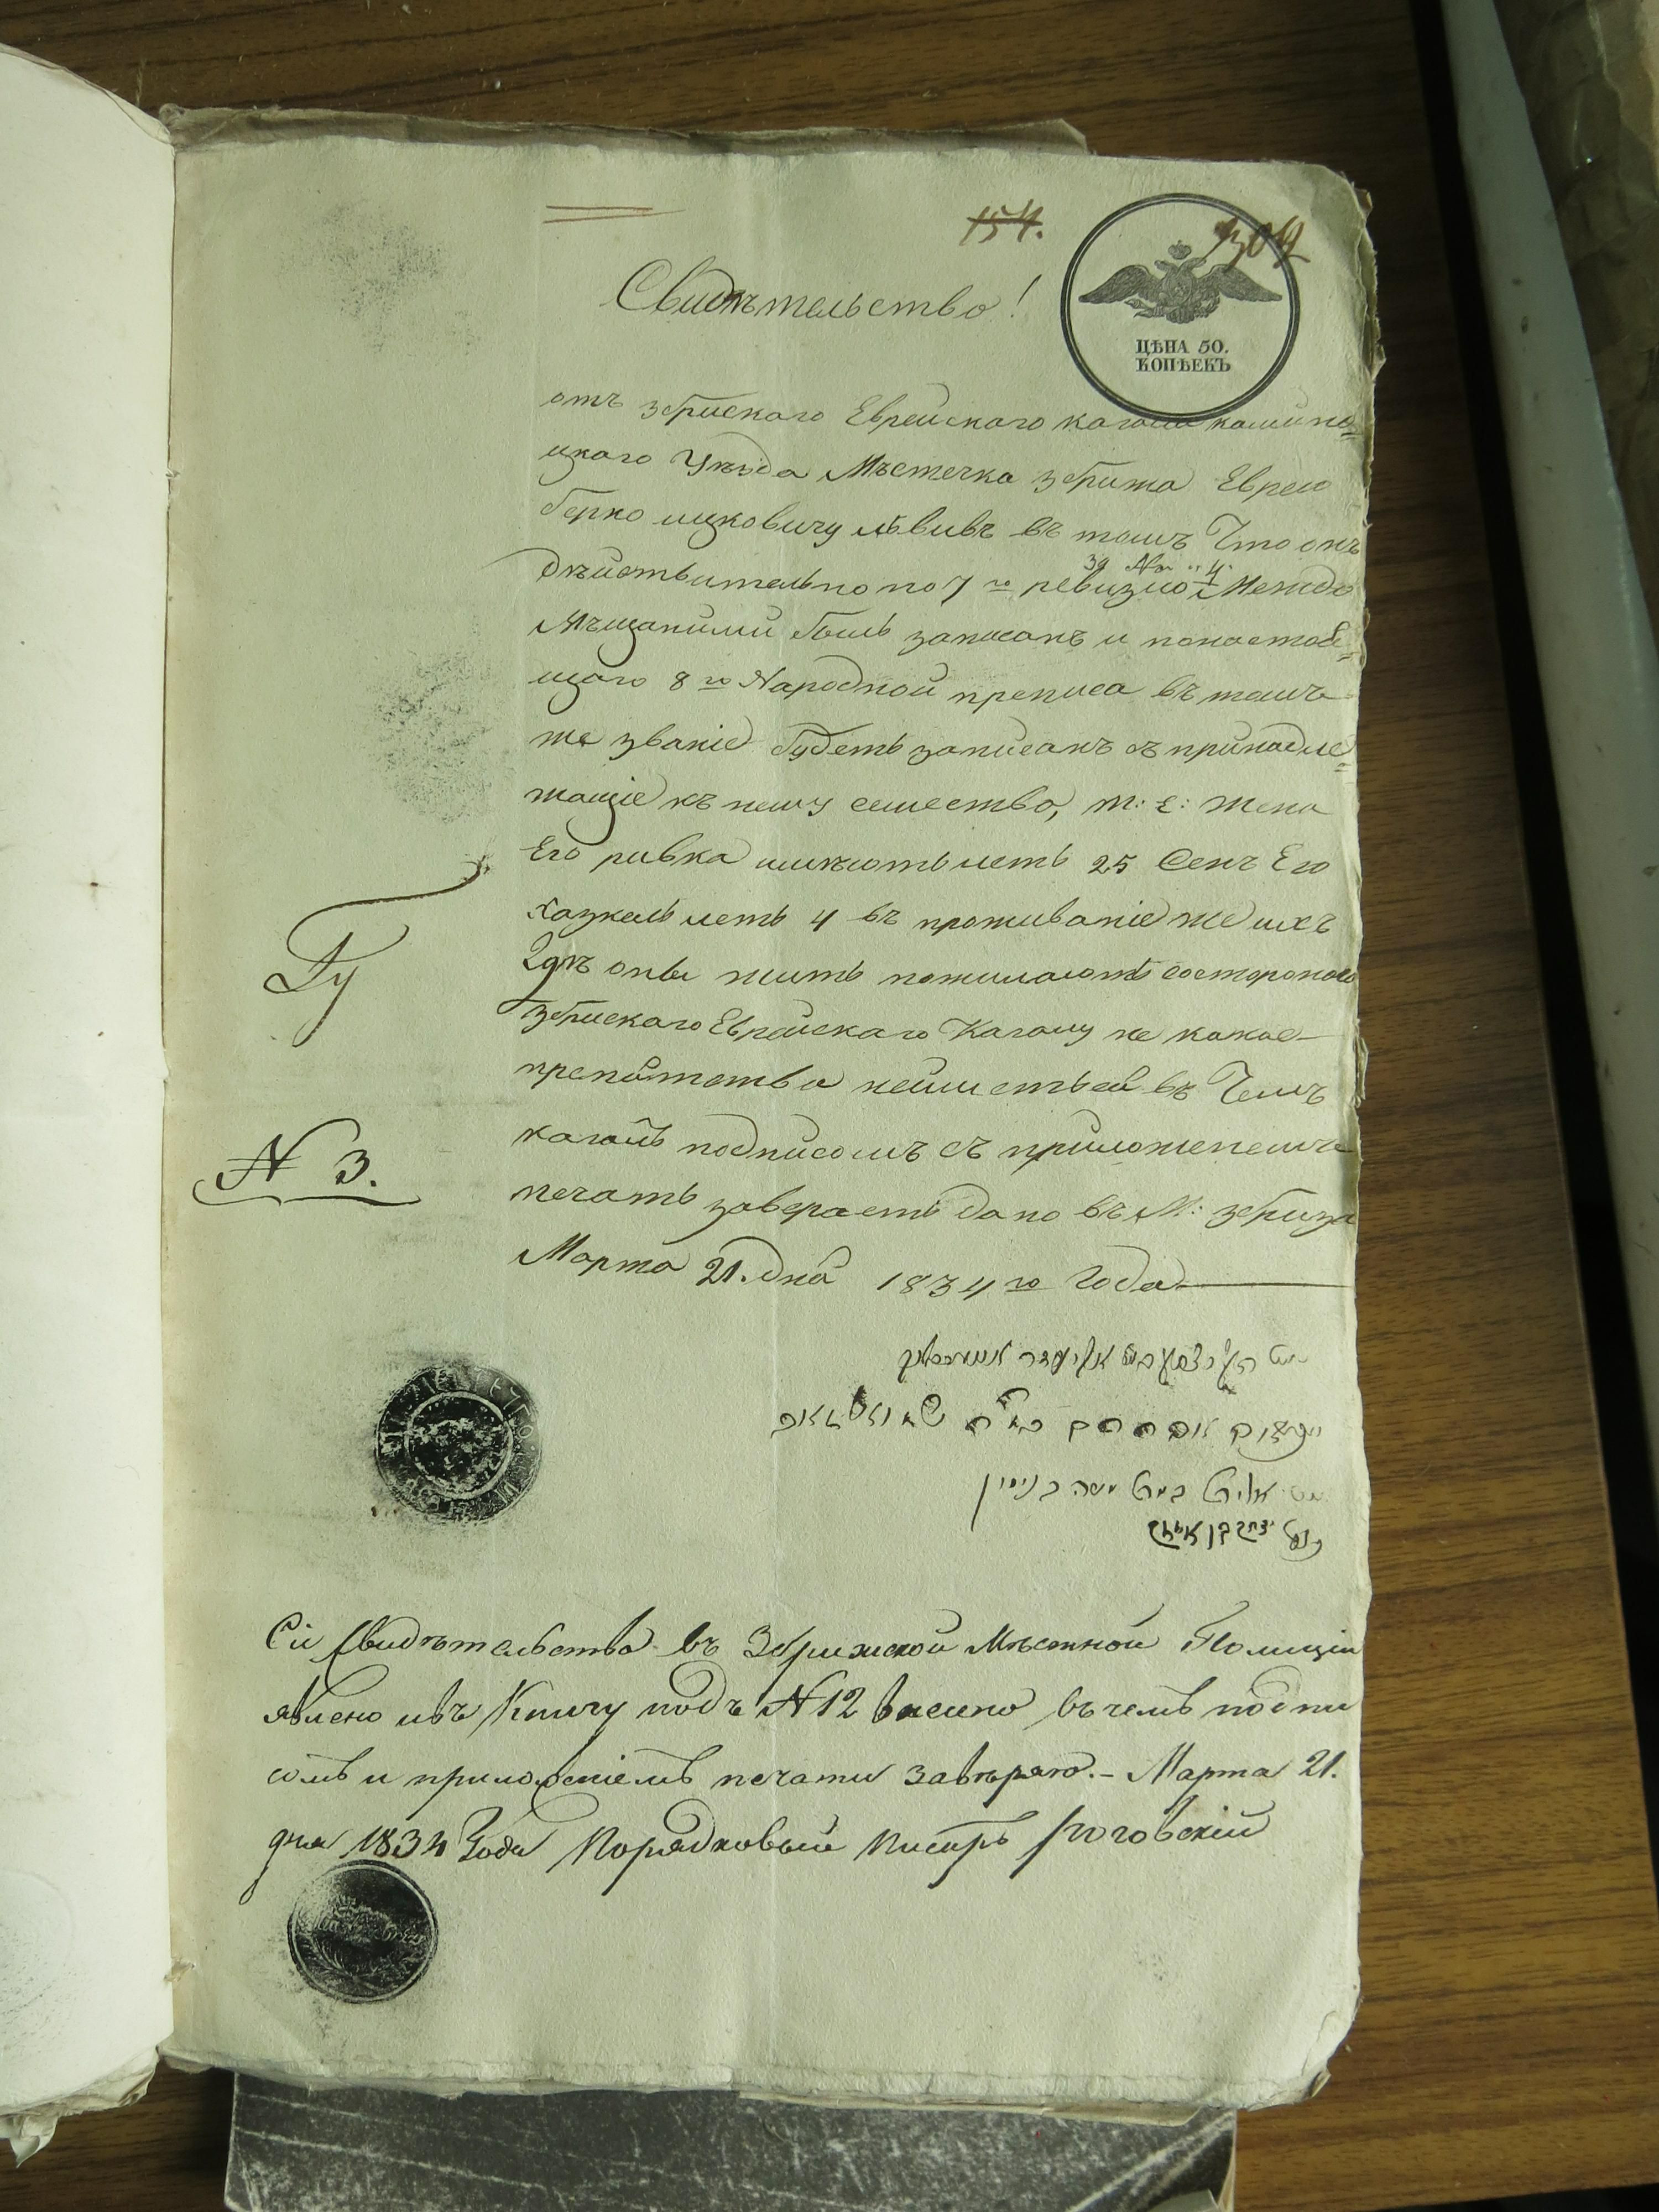 154. 302
Свидѣтельство!
ЦѢНА 50.
КОПѢЕКЪ
отъ збриского Еврейского кагала камине=
цкаго Уезда Мѣстечка збрижа Еврею
берко ицковичу лѣвивъ въ томъ Что онъ
за № 4
дѣйствительно по 7го ревизию Между
Мѣщаними быль записанъ и понастоя=
щаго 8го Народной преписа въ томъ
же званіе будеть записанъ съ принадле=
жащіе къ нему семество, т: е: жена
Его ривка имѣють леть 25 Сенъ Его
хаzкель леть 4 въ проживаніе же ихъ
Гдѣ оны жить пожилають состороною
Збриского Еврейского Кагалу не какое
препятства неиметьса въ Чемъ
кагалъ подписомъ съ приложенемъ
печать заверaеть дано въ М: збриза
Марта 21. дня 1834го Года
Ду
N 3.
Сіе Свидѣтельство въ Збрижской Мѣстной Полиціи
явлено ивъ Книгу подъ N 12 внесино въ чемъ подпи
сомъ и приложеніемъ печати завѣряю. - Марта 21.
дня 1834 Года Порядковый Писарь Роговскій